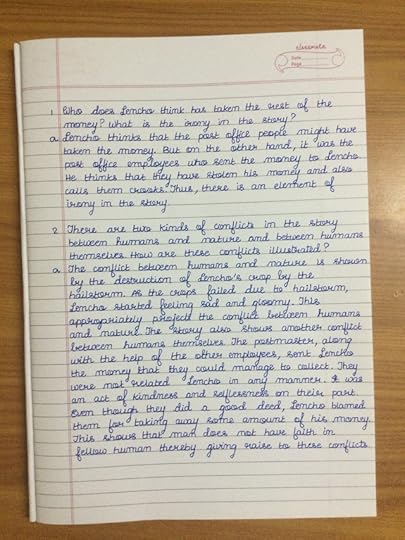 classmate
Date
Page
1. Who does Lencho think has taken the rest of the
money? what is the irony in the story?
a. Lencho thinks that the post office people might have
taken the money. But on the other hand, it was the
post office employees who sent the money to Lencho.
He thinks that they have stolen his money and also
calls them crooks. Thus, there is an element of
irony in the story.
2. There are two kinds of conflicts in the story
between humans and nature and between humans
themselves. How are these conflicts illustrated?
a. The conflict between humans and nature is shown
by the destruction of Lencho's crop by the
hailstorm. As the crops failed due to hailstorm,
Lencho started feeling sad and gloomy. This
appropriately projects the conflict between humans
and nature. The story also shows another conflict
between humans themselves. The postmaster, along
with the help of the other employees, sent Lencho
the money that they could manage to collect. They
were not related Lencho in any manner. It was
an act of kindness and selflessness on their part.
Even though they did a good deed, Lencho blamed
them for taking away some amount of his money.
This shows that man does not have faith in
fellow human thereby giving raise to these conflicts.